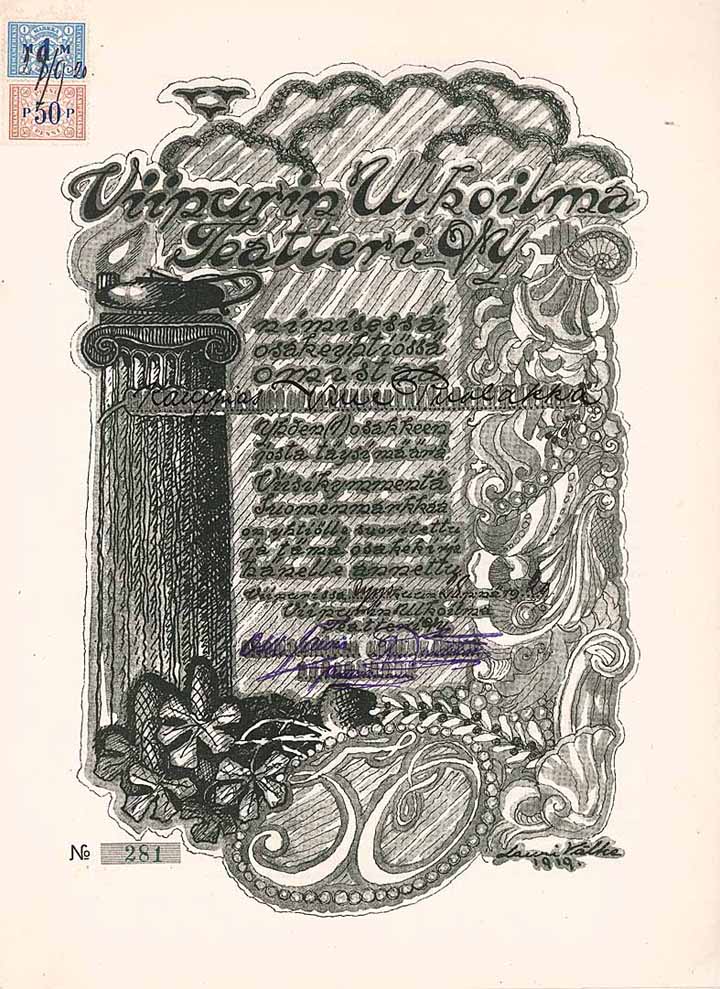 1 MARKKA 1
M M
18/9 20
P 50 P
Viipurin Ulkoilma
Teatteri O/Y
nimisessä
osakeyhtiössä
omistaa
Kauppias
Yhden (1) osakkeen
josta täysi määrä
Viisikymmentä
Suomenmarkkaa
on yhtiölle suoritettu
ja tämä osakekirja
hänelle annettu
Viipurissa kuun p:nä 19
Viipurin Ulkoilma
Teatteri O/Y
50
No 281
Lauri Välke
1919.